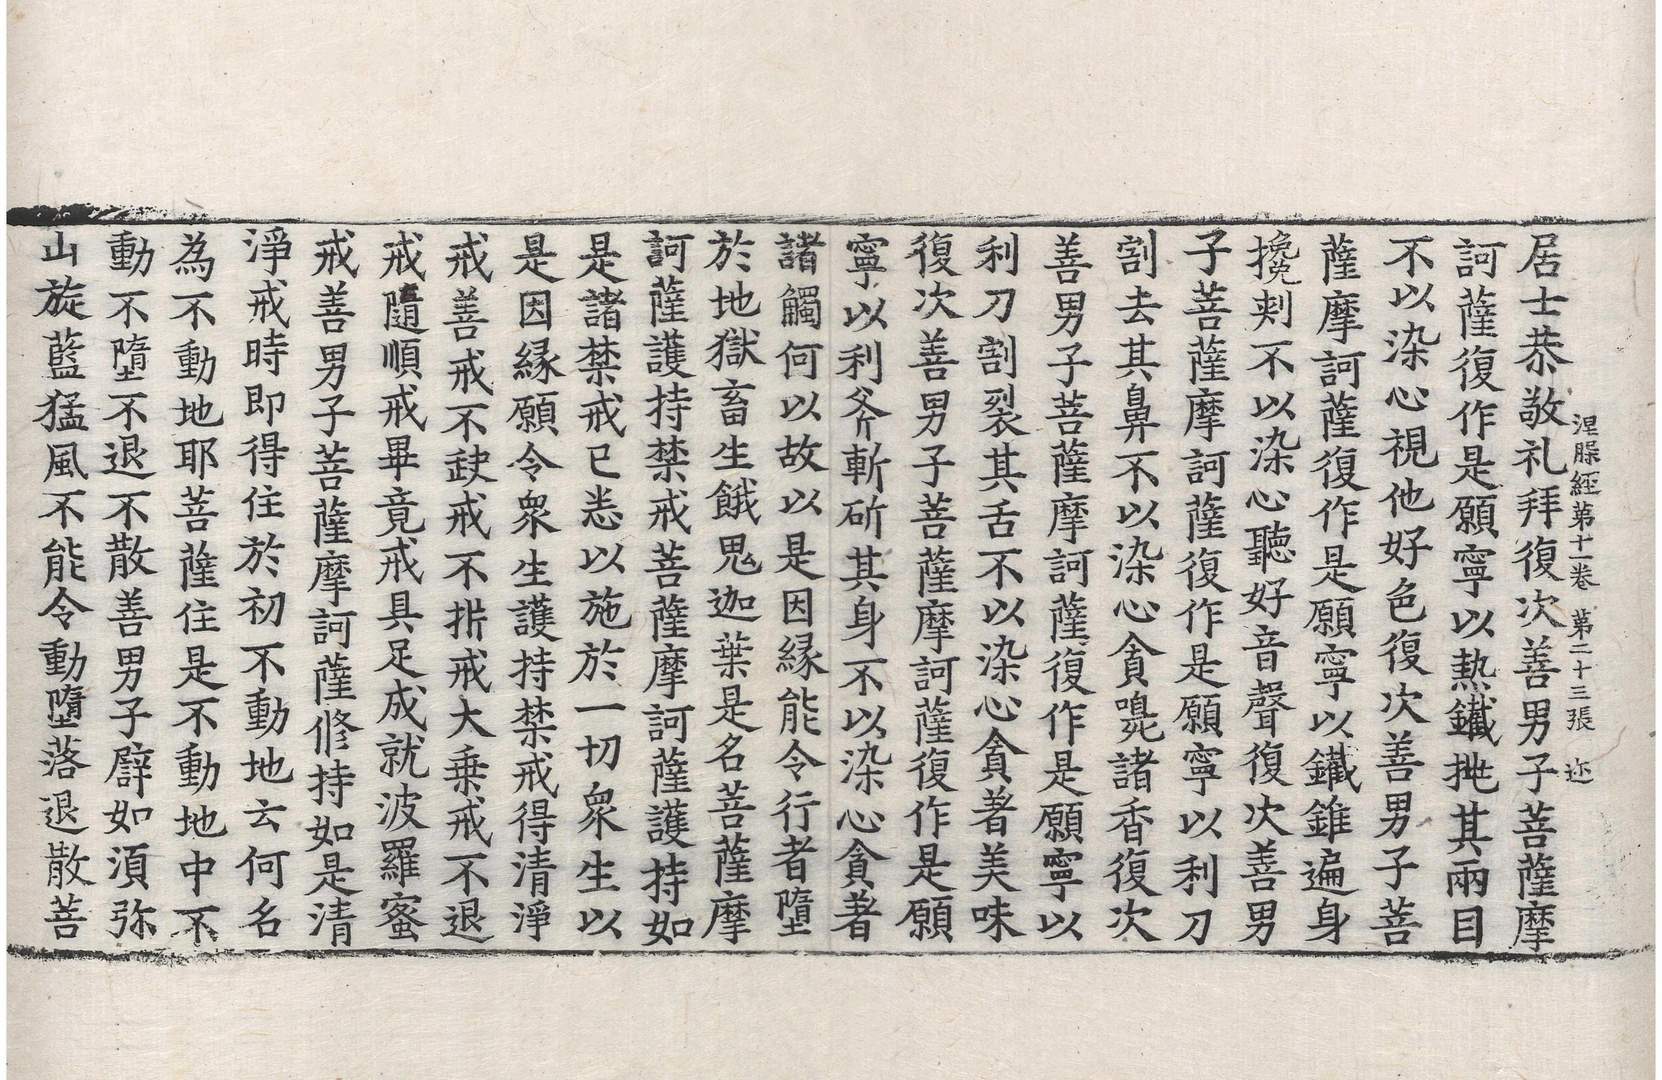 涅槃経第十一卷　第二十三張　迩
居士恭敬礼拜復次善男子菩薩摩
訶薩復作是願寧以熱鐵挑其兩目
不以染心視他好色復次善男子菩
薩摩訶薩復作是願寧以鐵錐遍身
攙刾不以染心聽好音聲復次善男
子菩薩摩訶薩復作是願寧以利刀
割去其鼻不以染心貪嗅諸香復次
善男子菩薩摩訶薩復作是願寧以
利刀割裂其舌不以染心貪著美味
復次善男子菩薩摩訶薩復作是願
寧以利斧斬斫其身不以染心貪著
諸觸何以故以是因縁能令行者墮
於地獄畜生餓鬼迦葉是名菩薩摩
訶薩護持禁戒菩薩摩訶薩護持如
是諸禁戒已悉以施於一切眾生以
是因縁願令眾生護持禁戒得清淨
戒善戒不缺戒不㭊戒大乗戒不退
戒隨順戒畢竟戒具足成就波羅蜜
戒善男子菩薩摩訶薩修持如是清
淨戒時即得住於初不動地云何名
為不動地耶菩薩住是不動地中不
動不墮不退不散善男子譬如湏弥
山旋藍猛風不能令動墮落退散菩